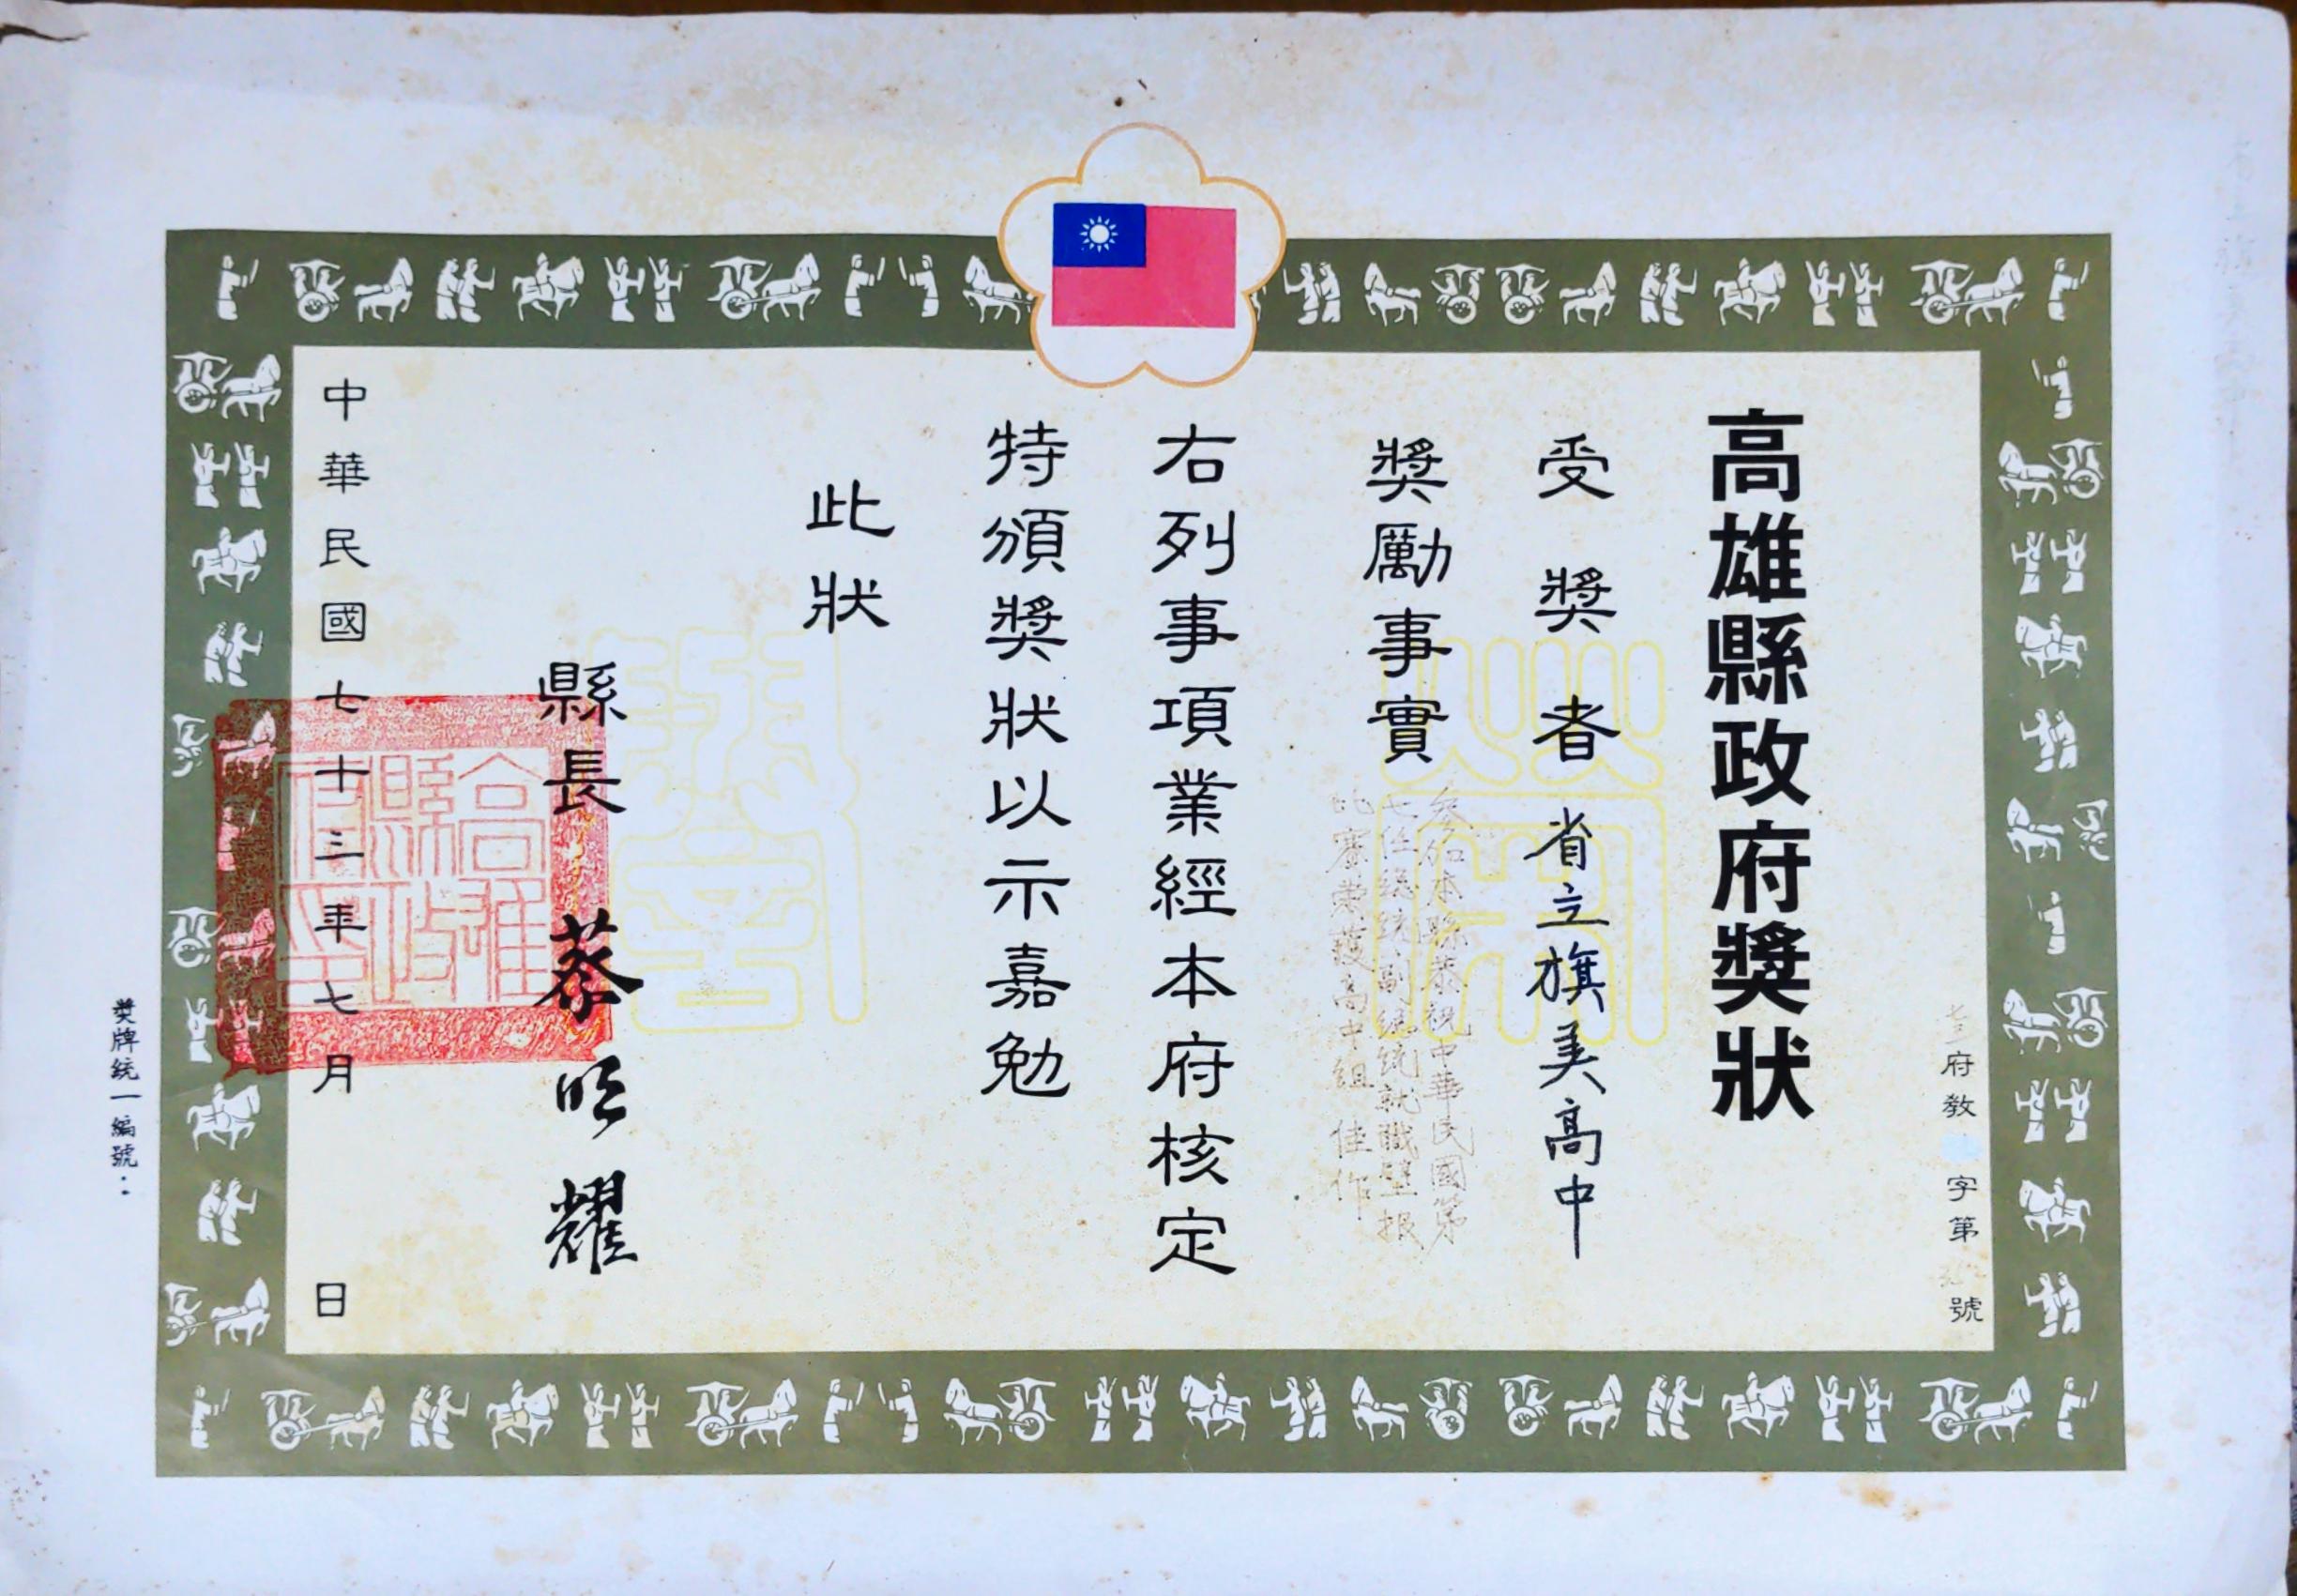 七三府教字第號
高雄縣政府獎狀
受獎者 省立旗美高中
獎勵事實
參加本縣恭祝中華民國第
七任總統副總統就職壁报
比賽榮獲高中組佳作
右列事項業經本府核定
特頒獎狀以示嘉勉
此狀
縣長 蔡明耀
中華民國七十三年七月 日
高雄縣政府印
獎牌統一編號：
榮譽